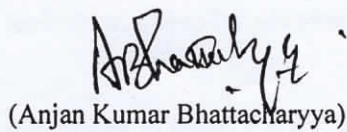 (Anjan Kumar Bhattacharyya)